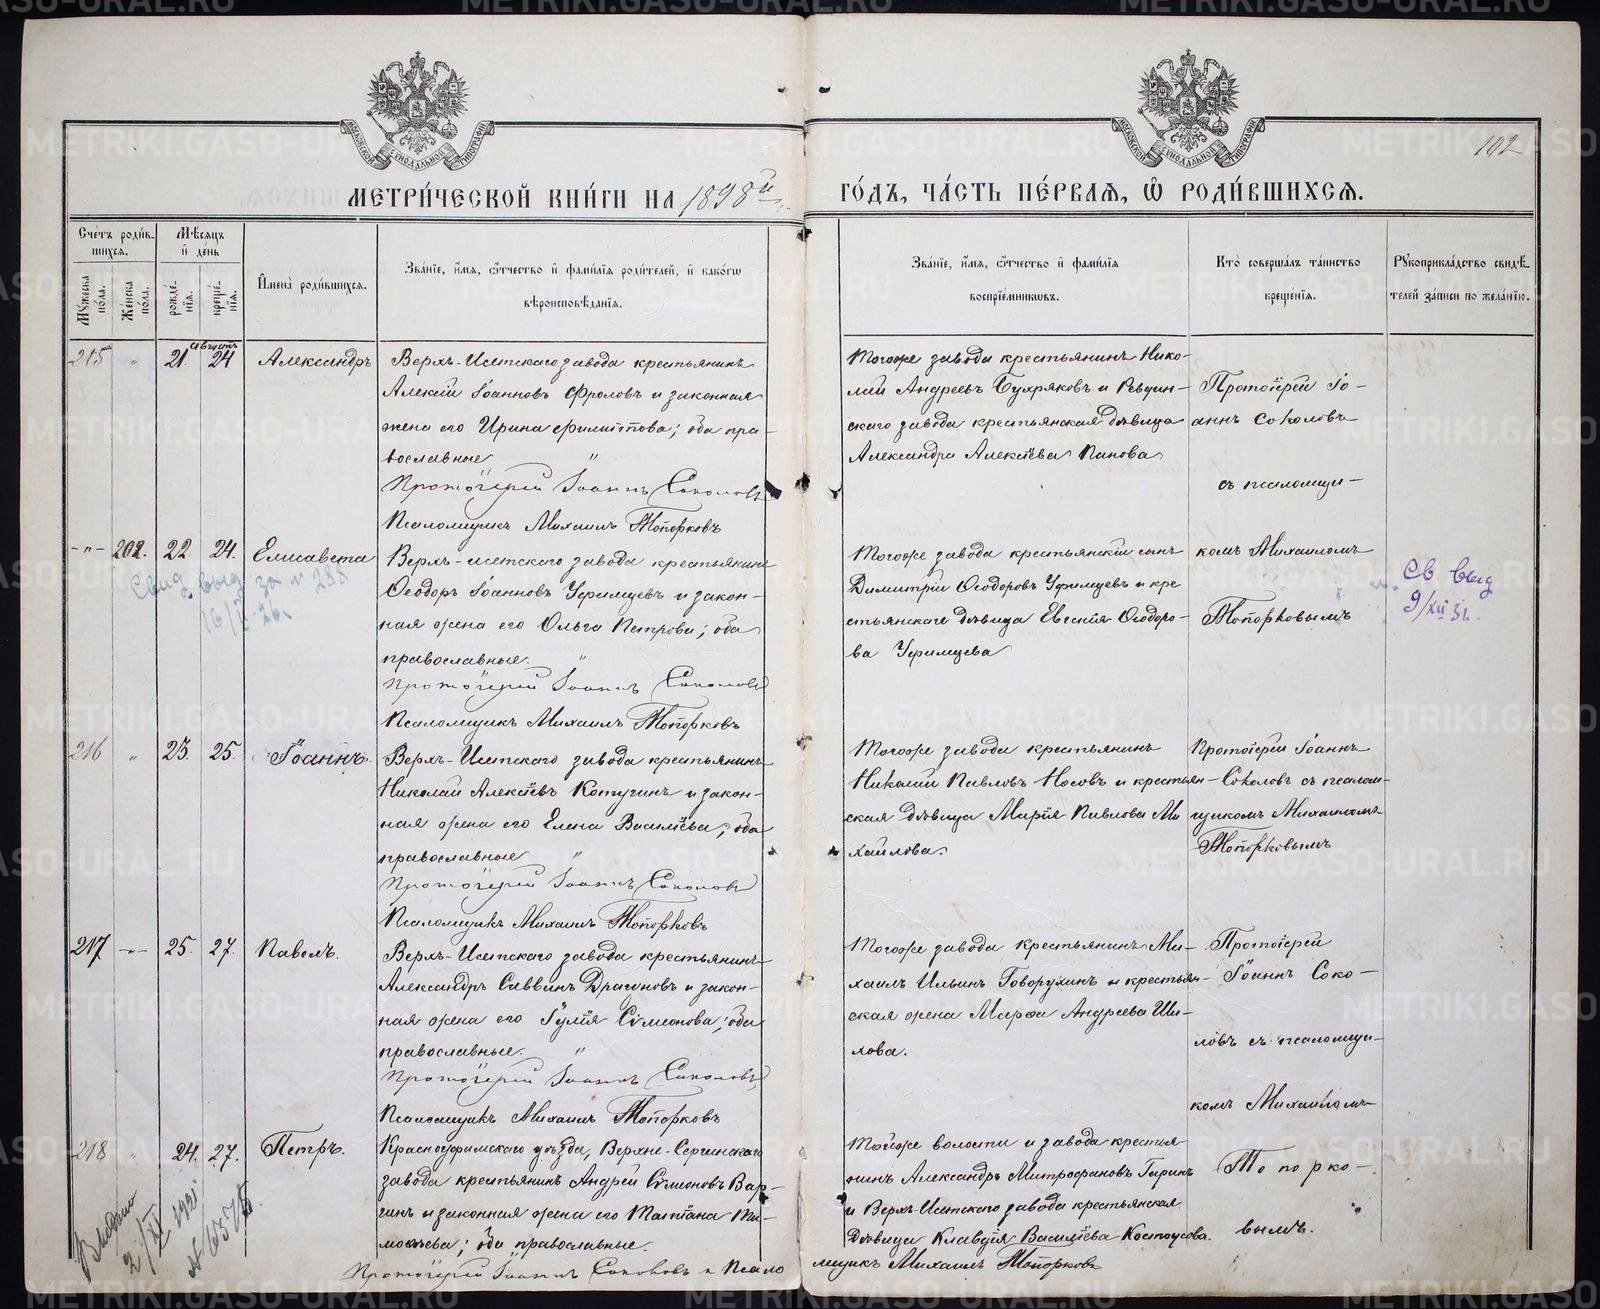 МОСКОВСКОЙ СѴНОДАЛЬНОЙ ТИПОГРАФІИ
МОСКОВСКОЙ СѴНОДАЛЬНОЙ ТИПОГРАФІИ
192
МЕТРИ́ЧЕСКОЙ КНИ́ГИ НА 1898й
ГО́ДЪ, ЧА́СТЬ ПЕ́РВАѦ, Ѡ҆ РОДИ́ВШИХСѦ.
Сче́тъ роди́в-
шихсѧ.
Мꙋ́жеска
по́ла.
Же́нска
по́ла.
Мѣ́сѧцъ
и҆ де́нь
рожде́-
нїѧ.
креще́-
нїѧ.
И҆мена̀ роди́вшихсѧ.
Зва́нїе, и҆́мѧ, ѻ҆́тчество и҆ фами́лїѧ роди́телей, и҆ како́гѡ
вѣроисповѣ́данїѧ.
Зва́нїе, и҆́мѧ, ѻ҆́тчество и҆ фами́лїѧ
воспрїе́мникѡвъ.
Кто̀ соверша́лъ та́инство
креще́нїѧ.
Рꙋкоприкла́дство свидѣ́-
телей за́писи по жела́нїю.
Августъ
215 " 21. 24 Александръ
Верхъ-Исетскаго завода крестьянинъ
Алексій Іоанновъ Фроловъ и законная
жена его Ирина Филиппова; оба пра-
вославные "
Протоіерей Іоаннъ Соколовъ
Псаломщикъ Михаилъ Топорковъ
Тогоже завода крестьянинъ Нико-
лай Андреевъ Бухряковъ и Ревдин-
скаго завода крестьянская дѣвица
Александра Алексіева Панова
Протоіерей Іо-
аннъ Соколовъ
съ псаломщи-
-"- 202. 22 24. Елисавета
Верхъ-исетскаго завода крестьянинъ
Ѳеодоръ Іоанновъ Уфимцевъ и закон-
ная жена его Ольга Петрова; оба
православные. "
Протоіерей Іоаннъ Соколовъ
Псаломщикъ Михаилъ Топорковъ
Свид. выд за № 288
16/IX-26.
Тогоже завода крестьянскій сынъ
Димитрій Ѳеодоровъ Уфимцевъ и кре
стьянская дѣвица Евгенія Ѳеодоро-
ва Уфимцева
комъ Михаиломъ
Топорковымъ
Св выд
9/XII 31.
216 " 23. 25. Іоаннъ.
Верхъ-Исетскаго завода крестьянинъ
Николай Алексіевъ Котугинъ и закон-
ная жена его Елена Василіева; оба
православные "
Протоіерей Іоаннъ Соколовъ
Псаломщикъ Михаилъ Топорковъ
Тогоже завода крестьянинъ
Николай Павловъ Носовъ и крестьян-
ская дѣвица Марія Павлова Ми
хаилова.
Протоіерей Іоаннъ
Соколовъ съ псалом-
щикомъ Михаиломъ
Топорковымъ
217 -"- 25. 27. Павелъ.
Верхъ-Исетскаго завода крестьянинъ
Александръ Саввинъ Драгуновъ и закон-
ная жена его Іулія Сімеонова; оба
православные. "
Протоіерей Іоаннъ Соколовъ
Псаломщикъ Михаилъ Топорковъ
Тогоже завода крестьянинъ Ми-
хаилъ Ильинъ Говорухинъ и крестьян-
ская жена Марѳа Андреева Ши-
лова.
Протоіерей
Іоаннъ Соко-
ловъ съ псаломщи-
комъ Михаиломъ
218 " 24. 27. Петръ.
Красноуфимскаго уѣзда, Верхне-Сергинскаго
завода крестьянинъ Андрей Сімеоновъ Вар-
гинъ и законная жена его Татіана Ти-
моѳеева; оба православные.
Протоіерей Іоаннъ Соколовъ и Псало
мщикъ Михаилъ Топорковъ
Тойже волости и завода крестья-
нинъ Александръ Митрофановъ Гиринъ
и Верхъ-Исетскаго завода крестьянская
дѣвица Клавдія Василіева Костоусова.
Топорко-
вымъ.
METRIKI.GASO-URAL.RU